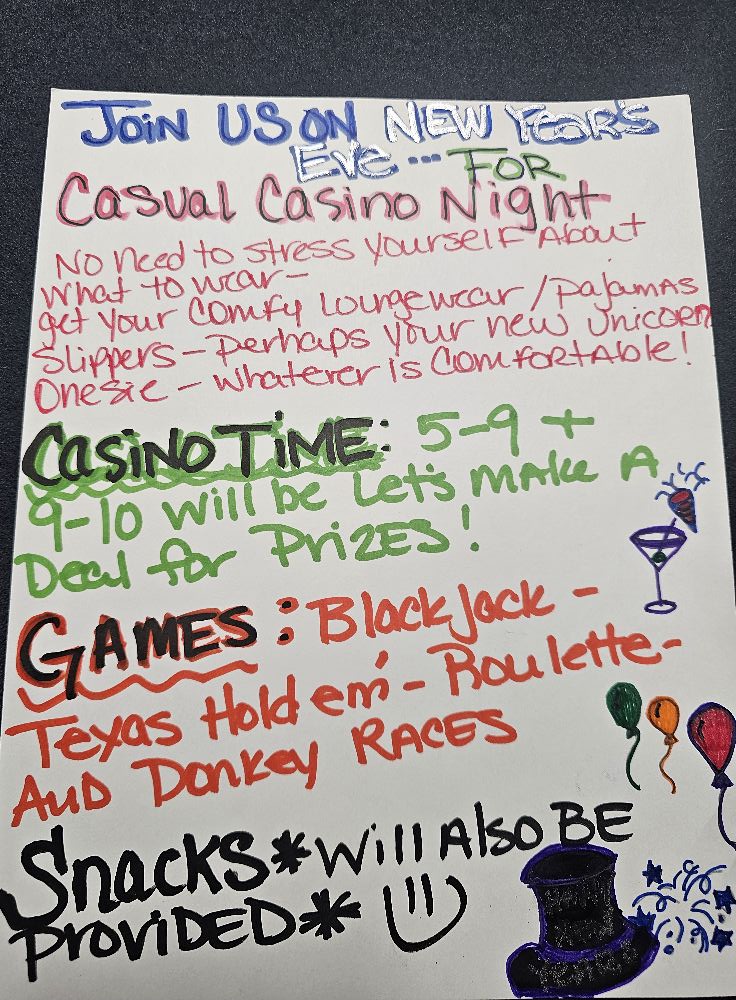 Join US ON NEW YEAR'S
Eve... FOR
Casual Casino Night
No need to stress yourself About
what to wear-
get your comfy loungewear / pajamas
Slippers - Perhaps your new unicorn
Onesie - whatever is comfortable!
Casino Time: 5-9 +
9-10 will be Let's make A
Deal for Prizes!
GAMES: Blackjack -
Texas Hold em' - Roulette -
AND Donkey RACES
Snacks* will Also BE
PROVIDED*